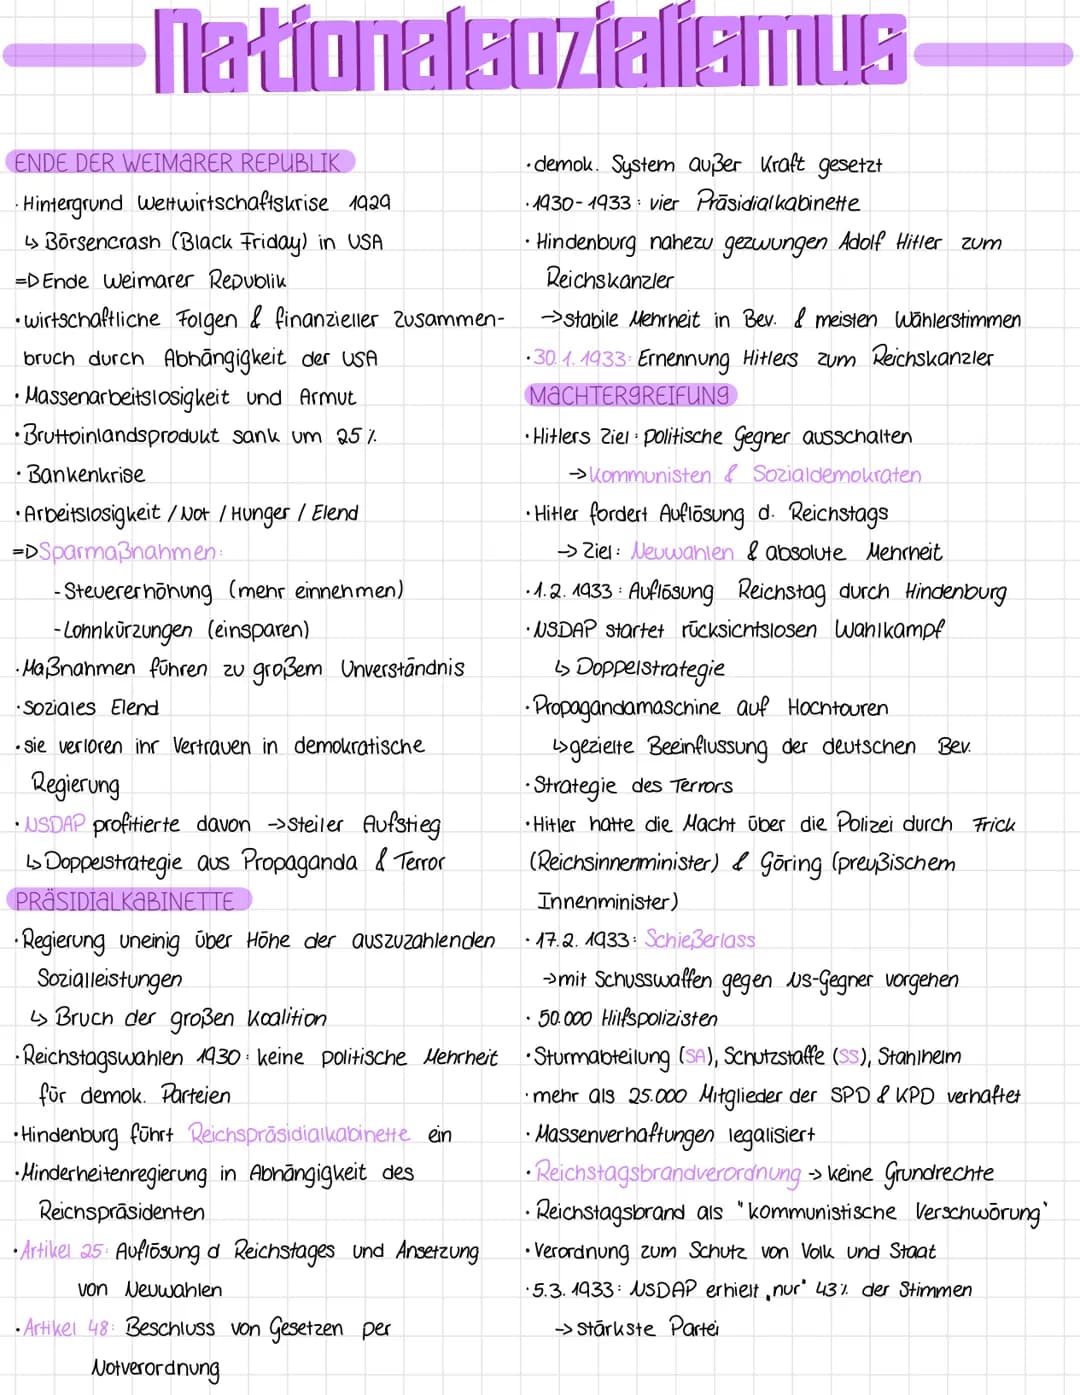 Nationalsozialismus
ENDE DER WEIMARER REPUBLIK
· Hintergrund Weltwirtschaftskrise 1929
↳ Börsencrash (Black Friday) in USA
=D Ende Weimarer Republik
· wirtschaftliche Folgen & finanzieller Zusammen-
bruch durch Abhängigkeit der USA
· Massenarbeitslosigkeit und Armut
· Bruttoinlandsprodukt sank um 25 %
· Bankenkrise
· Arbeitslosigkeit / Not / Hunger / Elend
=D Sparmaßnahmen:
- Steuererhöhung (mehr einnehmen)
- Lohnkürzungen (einsparen)
· Maßnahmen führen zu großem Unverständnis
· Soziales Elend
· sie verloren ihr Vertrauen in demokratische
Regierung
· NSDAP profitierte davon → steiler Aufstieg
↳ Doppelstrategie aus Propaganda & Terror
PRÄSIDIALKABINETTE
· Regierung uneinig über Höhe der auszuzahlenden
Sozialleistungen
↳ Bruch der großen Koalition
· Reichstagswahlen 1930: keine politische Mehrheit
für demok. Parteien
· Hindenburg führt Reichspräsidialkabinette ein
· Minderheitenregierung in Abhängigkeit des
Reichspräsidenten
· Artikel 25: Auflösung d Reichstages und Ansetzung
von Neuwahlen
· Artikel 48: Beschluss von Gesetzen per
Notverordnung
· demok. System außer Kraft gesetzt
· 1930-1933: vier Präsidialkabinette
· Hindenburg nahezu gezwungen Adolf Hitler zum
Reichskanzler
→ stabile Mehrheit in Bev. & meisten Wählerstimmen
· 30.1.1933: Ernennung Hitlers zum Reichskanzler
MACHTERGREIFUNG
· Hitlers Ziel: politische Gegner ausschalten
→ Kommunisten & Sozialdemokraten
· Hitler fordert Auflösung d. Reichstags
→ Ziel: Neuwahlen & absolute Mehrheit
· 1.2.1933: Auflösung Reichstag durch Hindenburg
· NSDAP startet rücksichtslosen Wahlkampf
↳ Doppelstrategie
· Propagandamaschine auf Hochtouren
↳ gezielte Beeinflussung der deutschen Bev.
· Strategie des Terrors
· Hitler hatte die Macht über die Polizei durch Frick
(Reichsinnenminister) & Göring (preußischem
Innenminister)
· 17.2.1933: Schießerlass
→ mit Schusswaffen gegen NS-Gegner vorgehen
· 50.000 Hilfspolizisten
· Sturmabteilung (SA), Schutzstaffe (SS), Stahlhelm
· mehr als 25.000 Mitglieder der SPD & KPD verhaftet
· Massenverhaftungen legalisiert
· Reichstagsbrandverordnung → keine Grundrechte
· Reichstagsbrand als "kommunistische Verschwörung"
· Verordnung zum Schutz von Volk und Staat
· 5.3.1933: NSDAP erhielt „nur" 43% der Stimmen
→ stärkste Partei